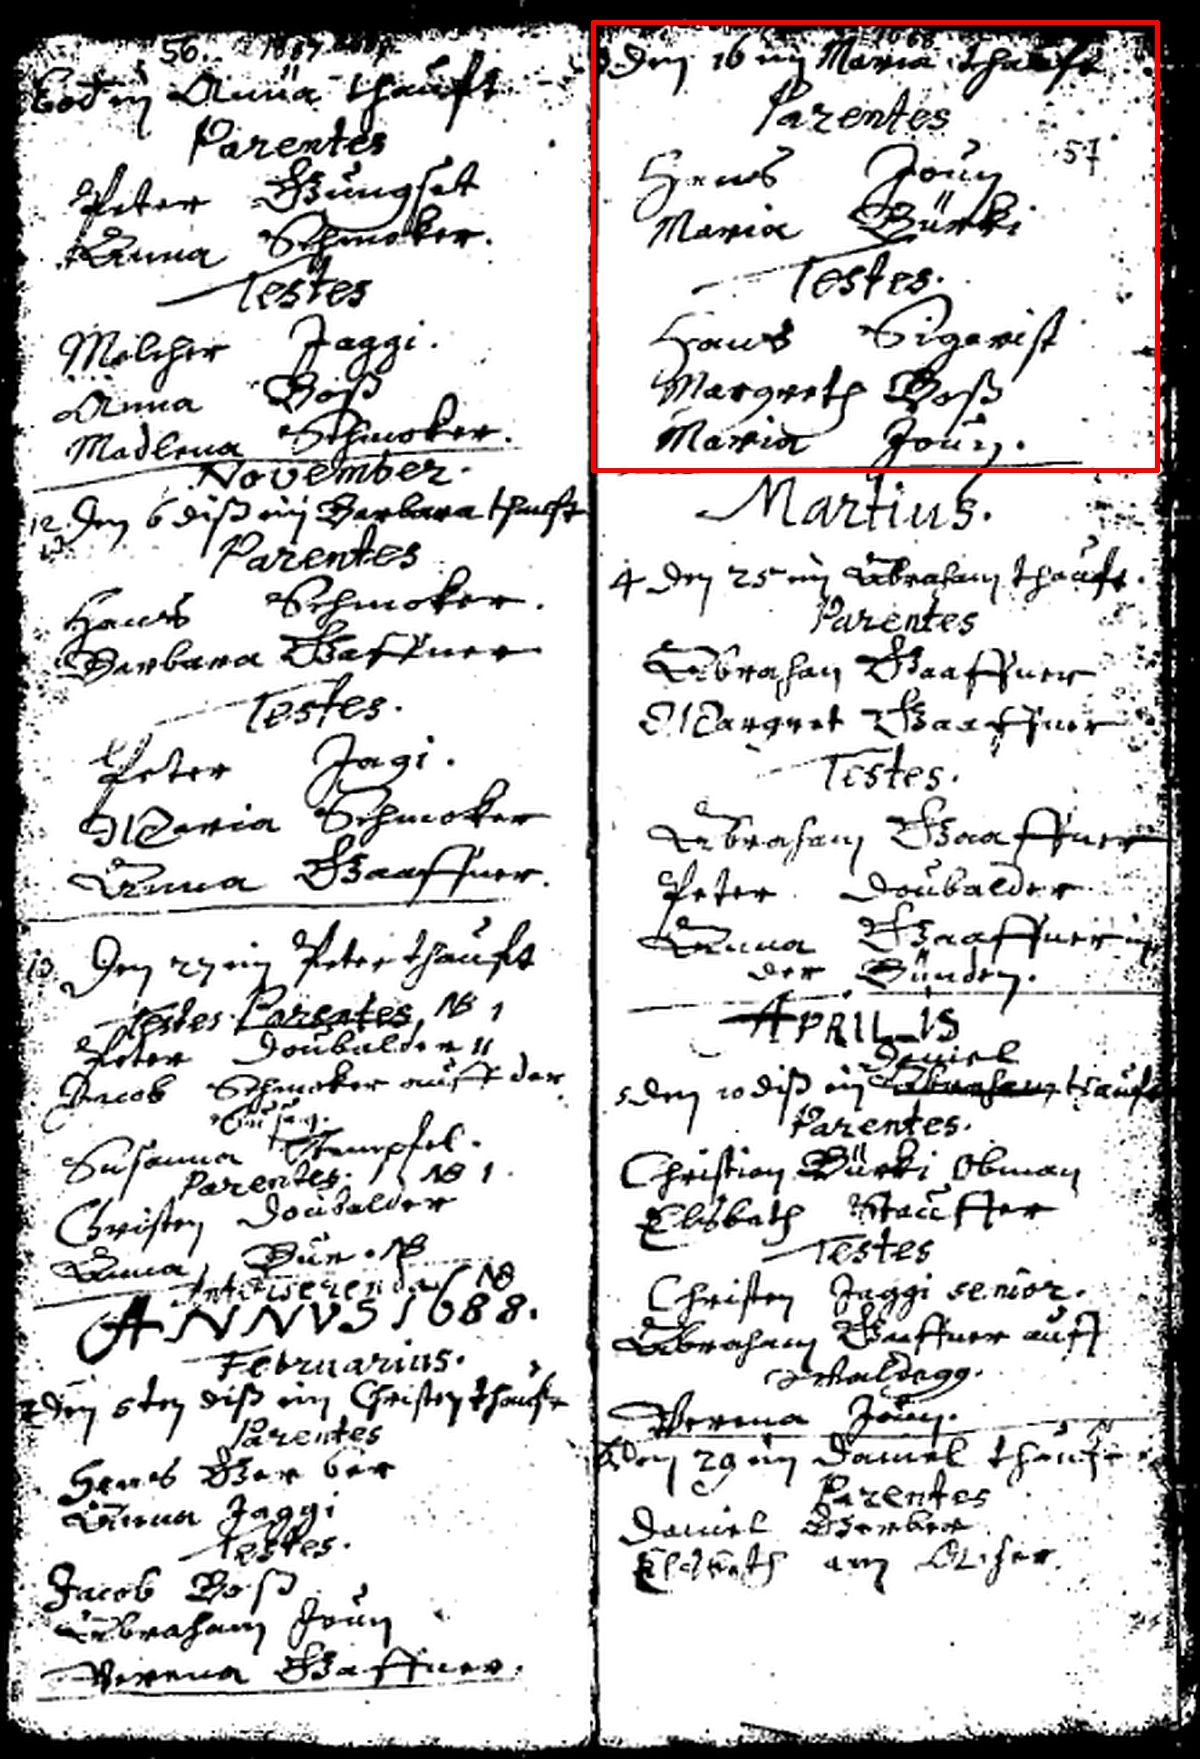 56. 1687
Eod ein Anna thaufft
Parentes
Peter Gungset
Anna Schmoker.
Testes
Melcher Jaggi.
Anna Boß
Madlena Schmoker.
November.
12. Den 6 diß ein Barbara thaufft
Parentes
Hans Schmoker.
Barbara Gaffner
Testes.
Peter Jagi.
Maria Schmoker
Anna Gaaffner.
13 Den 27 ein Peter thaufft
Testes Parentes NB 1
Peter Doubalder
Jacob Schmoker auff der
Susanna Stempfel.
Parentes. NB 1.
Christen Doubalder
Anna Bür. NB
NB
ANNVS 1688.
Februarius.
Den 5ten diß ein Christen thaufft
Parentes
Hans Gerber
Anna Jaggi
Testes.
Jacob Boß
Abraham Joun
Verena Gaffner.
1688
Den 16 ein Maria thaufft
Parentes
57
Hans Joun
Maria Bürki
Testes.
Hans Sigerist
Margreth Boß
Maria Joun.
Martius.
4 Den 25 ein Abraham thaufft.
Parentes
Abraham Gaaffner
Margret Gaaffner
Testes.
Abraham Gaaffner
Peter Doubalder
Anna Gaaffner in
der Bünden.
APRILIS
Daniel
5 Den 10 diß ein Abraham thaufft
Parentes.
Christian Bürki Obman
Elsbeth Stauffer
Testes
Christen Jaggi senior.
Abraham Gaffner auff
Waldegg.
Verena Joun.
Den 29 ein Daniel thaufft
Parentes
Daniel Gerber
Elsbeth am